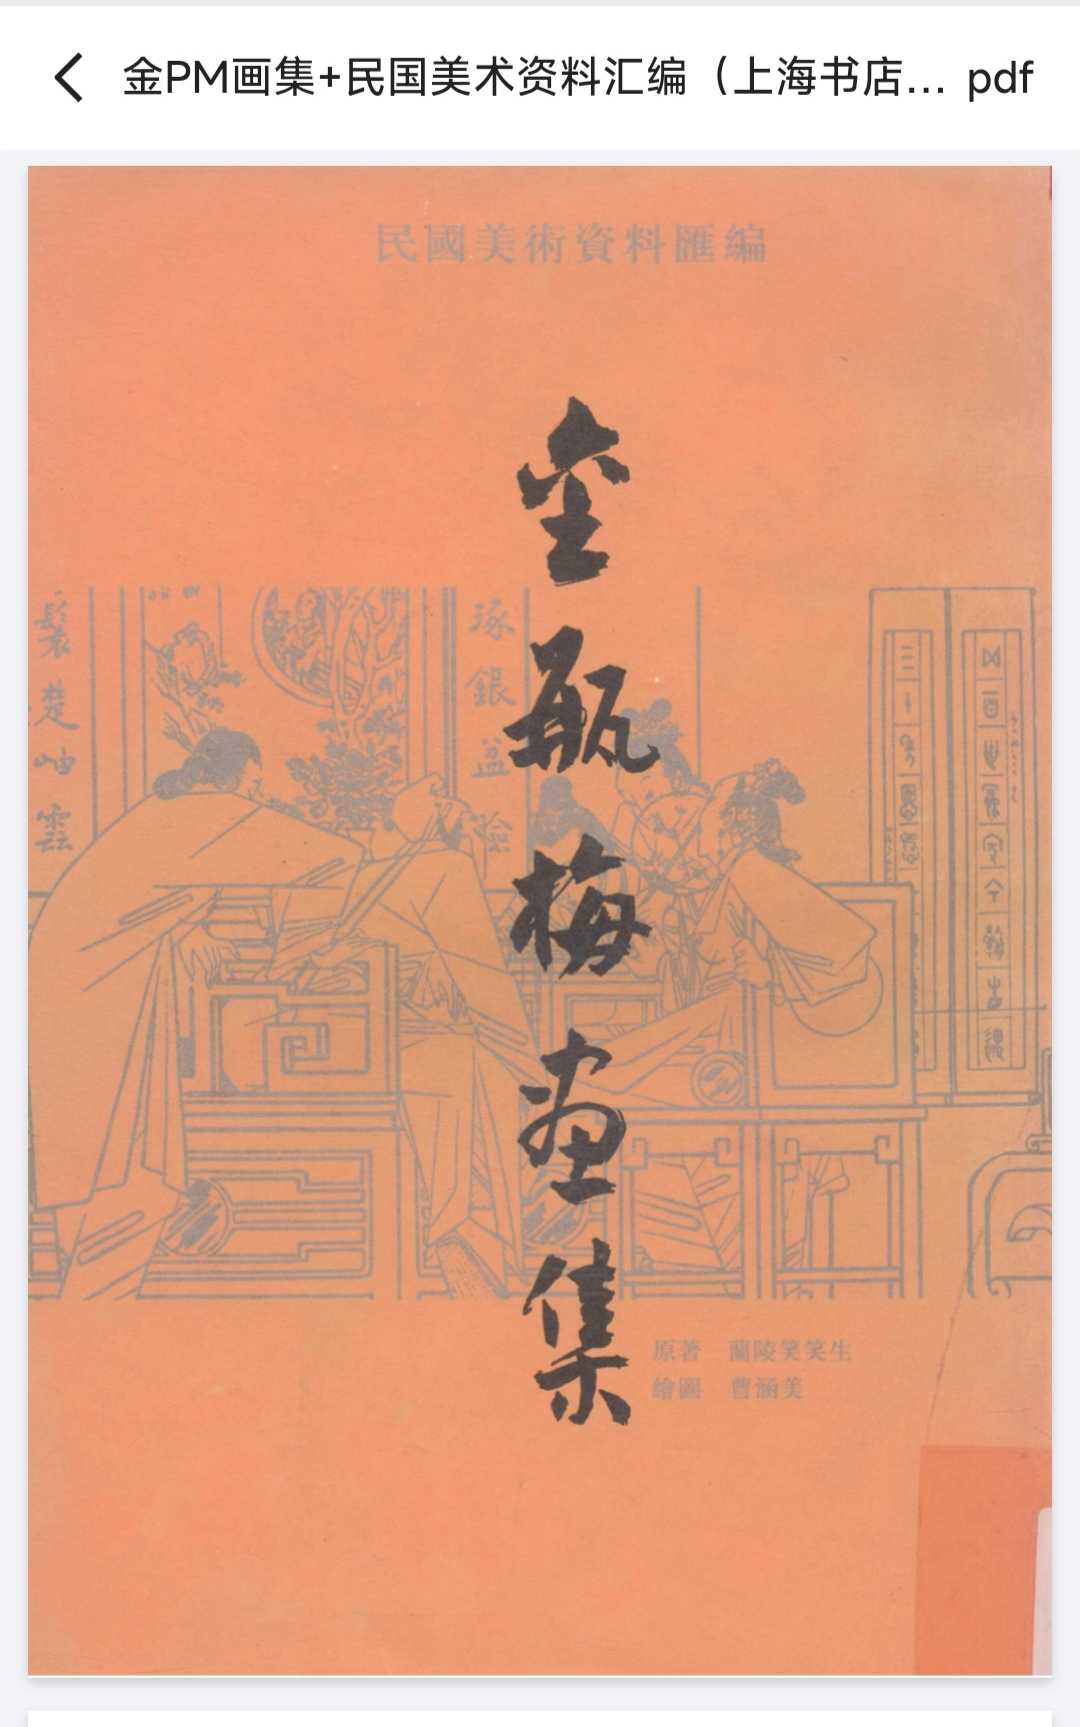 金PM画集+民国美术资料汇编（上海书店... pdf
民國美術資料匯編
金瓶梅画集
髮楚岫雲
琢銀盆
原著 蘭陵笑笑生
繪圖 曹涵美